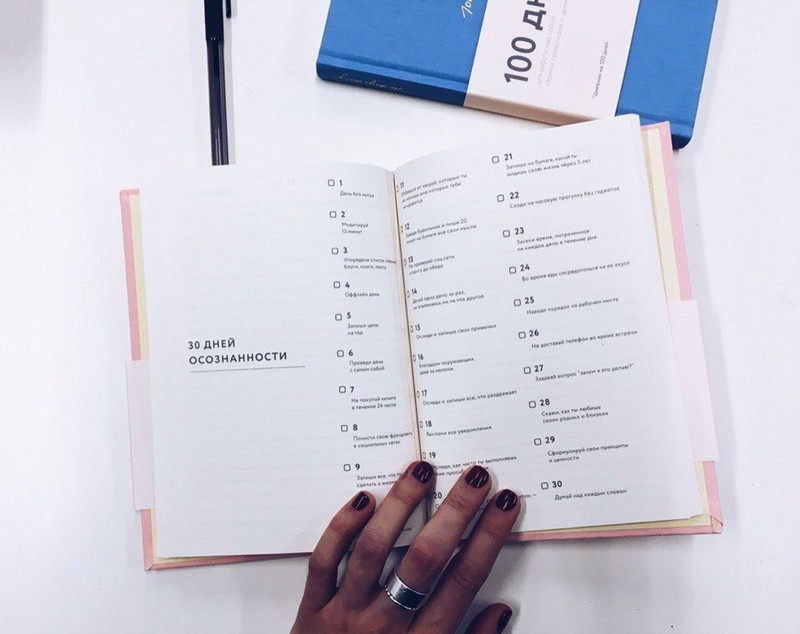 100
*дневник на 100 дней
30 ДНЕЙ
ОСОЗНАННОСТИ
1
День без нытья
2
Медитируй
15 минут
3
Упорядочи список
блоги, книги,
4
Оффлайн день
5
Запиши цели
на год
6
Проведи день
с самим собой
7
Не покупай ничего
в течение 24 часов
8
Почисти свою френдленту
в социальных сетях
9
Запиши все, что
сделать в жизни
11
Избавься от вещей, которые ты
не носишь или которые тебе
не нравятся
12
Заведи будильник и пиши 20
минут на бумаге все свои мысли
13
Не проверяй соц.сети
и почту до обеда
14
Делай одно дело за раз,
не отвлекаясь ни на что другое
15
Отследи и запиши свои привычки
16
Благодари окружающих,
даже за мелочи
17
Отследи и запиши все, что раздражает
18
Выключи все уведомления
19
как часто ты выполняешь
20
21
Запиши на бумаге, какой ты
видишь свою жизнь через 5 лет
22
Сходи на часовую прогулку без гаджетов
23
Засеки время, потраченное
на каждое дело в течение дня
24
Во время еды сосредоточься на ее вкусе
25
Наведи порядок на рабочем месте
26
Не доставай телефон во время встречи
27
Задавай вопрос "зачем я это делаю?"
28
Скажи, как ты любишь
своих родных и близких
29
Сформулируй свои принципы
и ценности
30
Думай над каждым словом